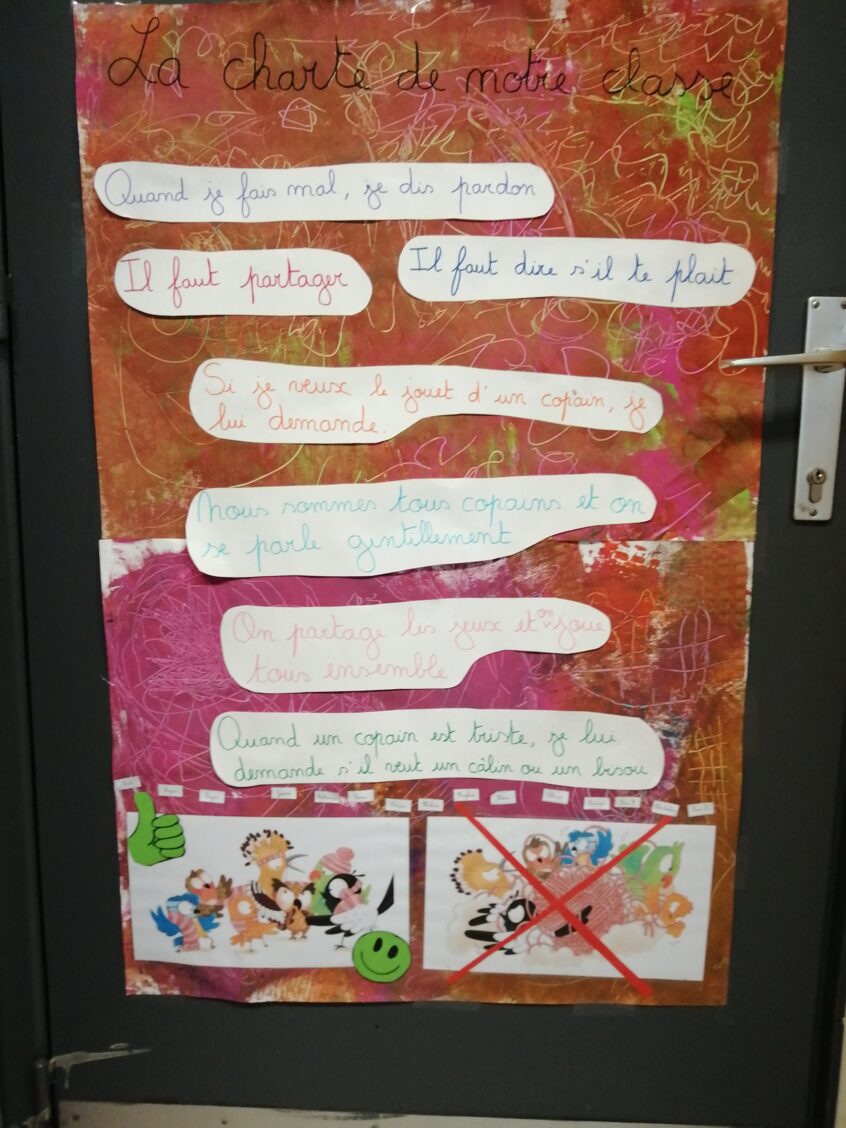 La charte de notre classe
Quand je fais mal, je dis pardon
Il faut partager
Il faut dire s'il te plait
Si je veux le jouet d'un copain, je
lui demande.
Nous sommes tous copains et on
se parle gentillement
On partage les jeux et on joue
tous ensemble
Quand un copain est triste, je lui
demande s'il veut un câlin ou un bisou